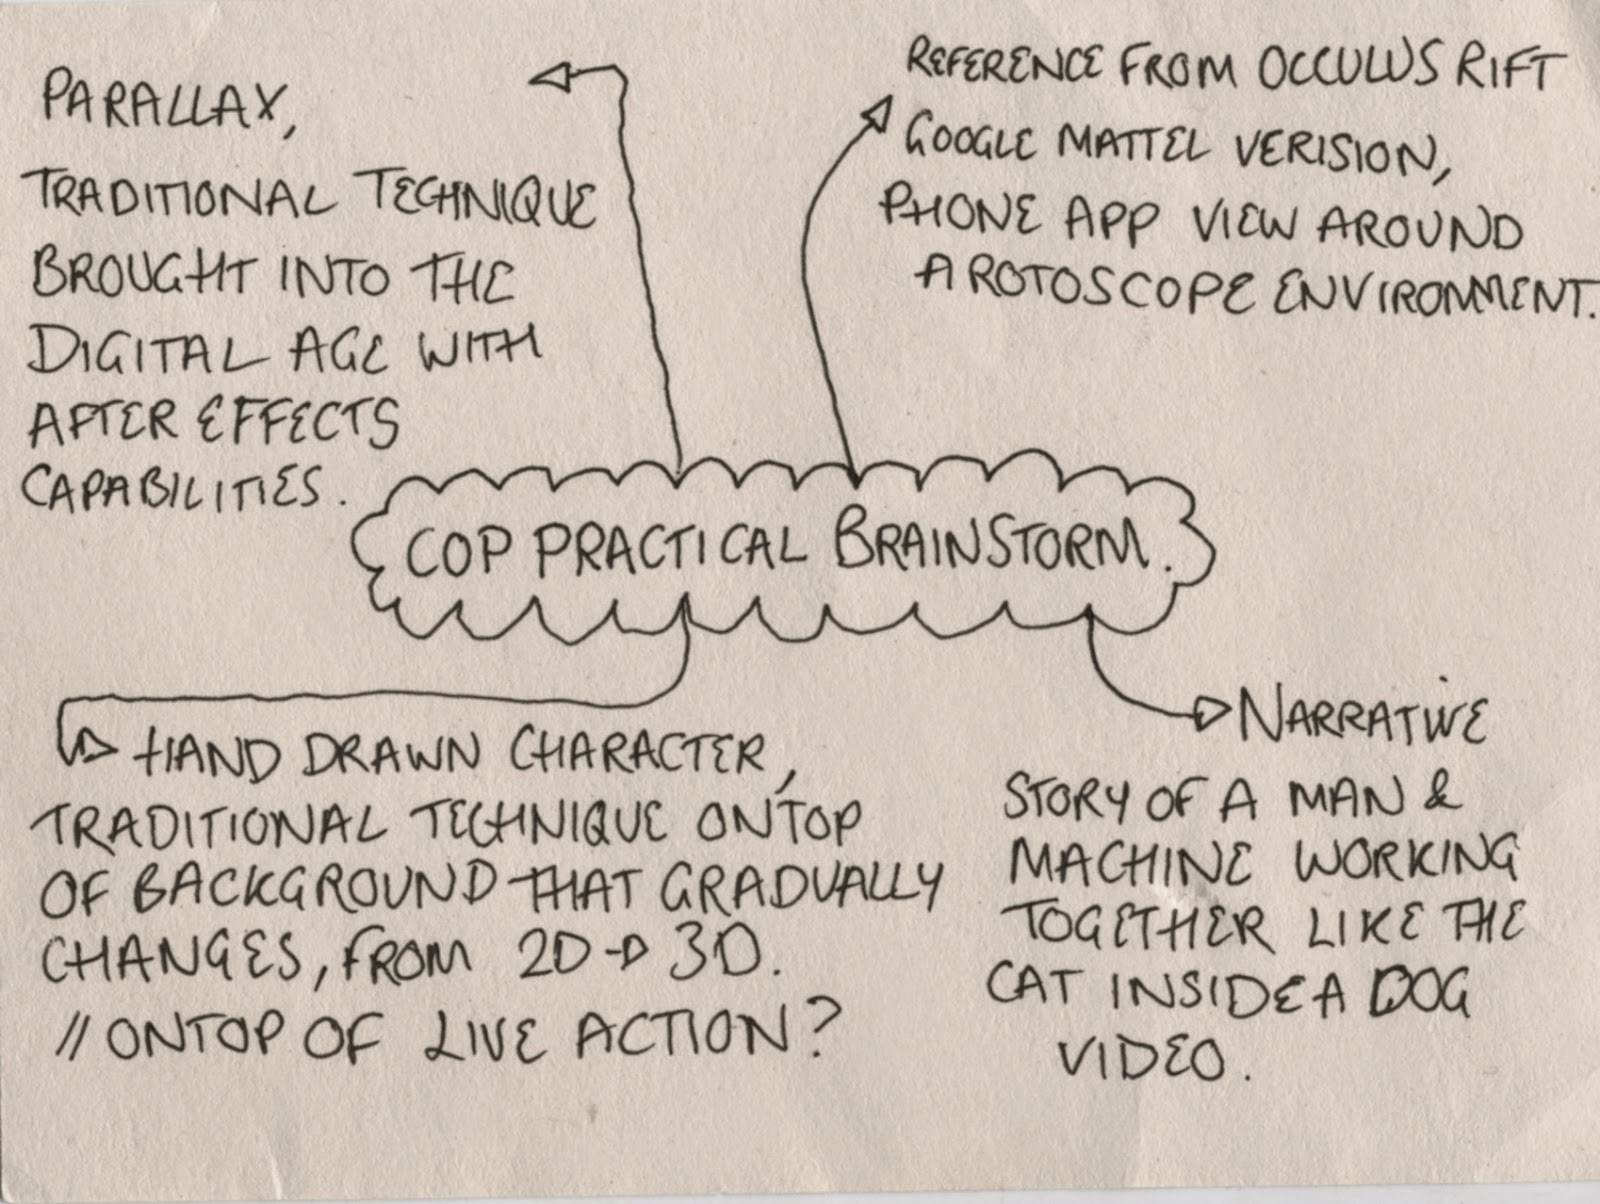 PARALLAX,
TRADITIONAL TECHNIQUE
BROUGHT INTO THE
DIGITAL AGE WITH
AFTER EFFECTS
CAPABILITIES.
REFERENCE FROM OCCULUS RIFT
GOOGLE MATTEL VERISION,
PHONE APP VIEW AROUND
A ROTOSCOPE ENVIRONMENT.
COP PRACTICAL BRAINSTORM.
HAND DRAWN CHARACTER,
TRADITIONAL TECHNIQUE ONTOP
OF BACKGROUND THAT GRADUALLY
CHANGES, FROM 2D → 3D.
// ONTOP OF LIVE ACTION?
NARRATIVE
STORY OF A MAN &
MACHINE WORKING
TOGETHER LIKE THE
CAT INSIDE A DOG
VIDEO.